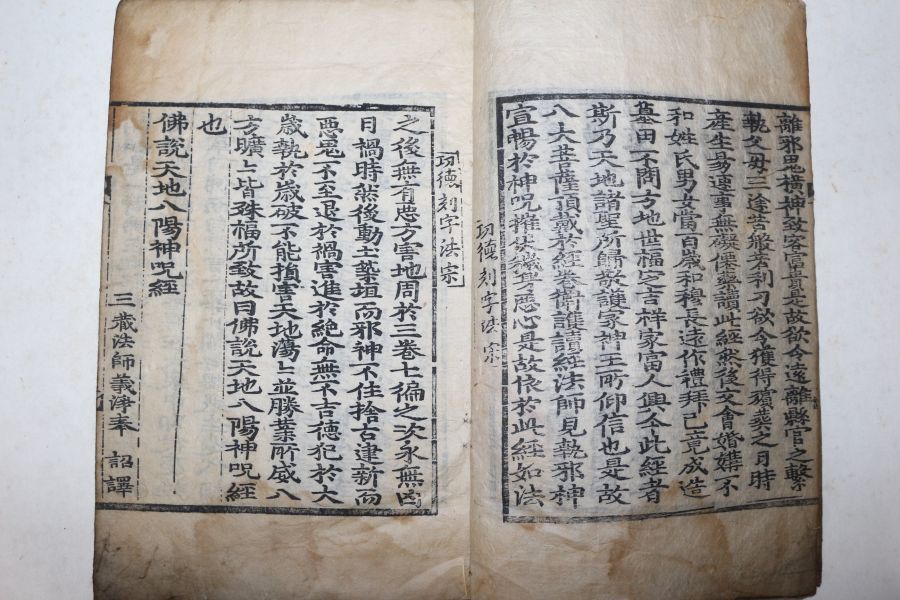 離邪鬼橫坤致客富貴是故欲令遠離縣官之繫
執父母三途苦般考利刀欲令獲得殯葬之月時
產生易運事無礙傑然讀此經然後交會婚媾不
和姓氏男女當百歲和穆長遠作禮拜已竟成造
墓田不問方地世福定吉祥家富人興今此經者
斯乃天地諸聖所歸敬護家神王所仰信也是故
八大菩薩頂戴於經卷衛護讀經法師見執邪神
宣暢於神呪摧伏惡心是故依於此經如法
功德刻字法宗
功德刻字法宗
之後無有惡方害地周於三卷七徧之次永無凶
日禍時然後動土築垣而邪神不住捨古建新而
惡鬼不至退於禍害進於絶命無不吉德犯於大
歲執於歲破不能損害天地蕩〻並勝葉所感八
方曠〻皆殊福所致故曰佛說天地八陽神呪經
也
佛說天地八陽神呪經
三藏法師義淨奉 詔譯